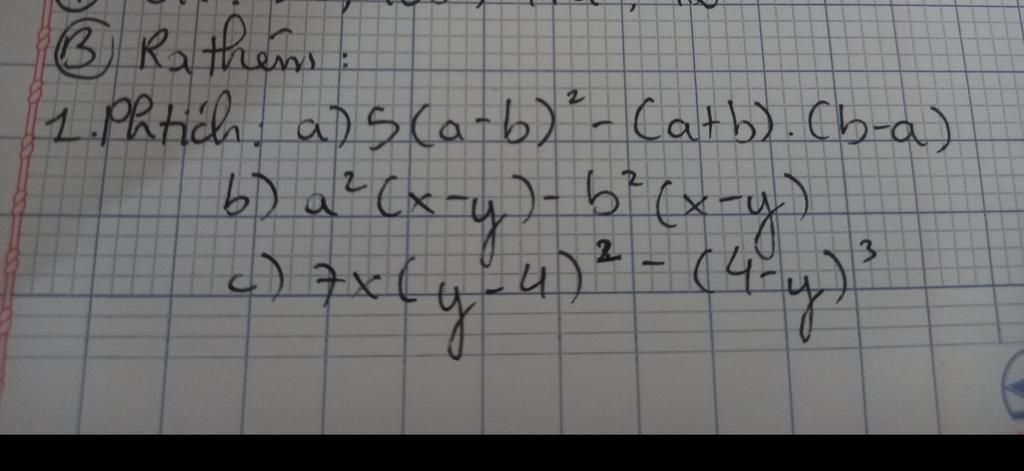 ③ Ra thêm:
1. Phtích: a) 5(a-b)² - (a+b).(b-a)
b) a²(x-y) - b²(x-y)
c) 7x(y-4)² - (4-y)³